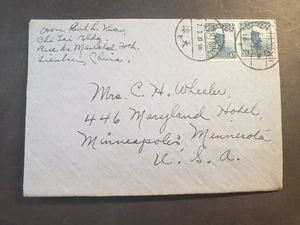 Chi Tai Bldg.
Rue du Marechal Foch.
Tientsin, China.
Mrs. C. H. Wheeler,
446 Maryland Hotel,
Minneapolis, Minnesota
U. S. A.